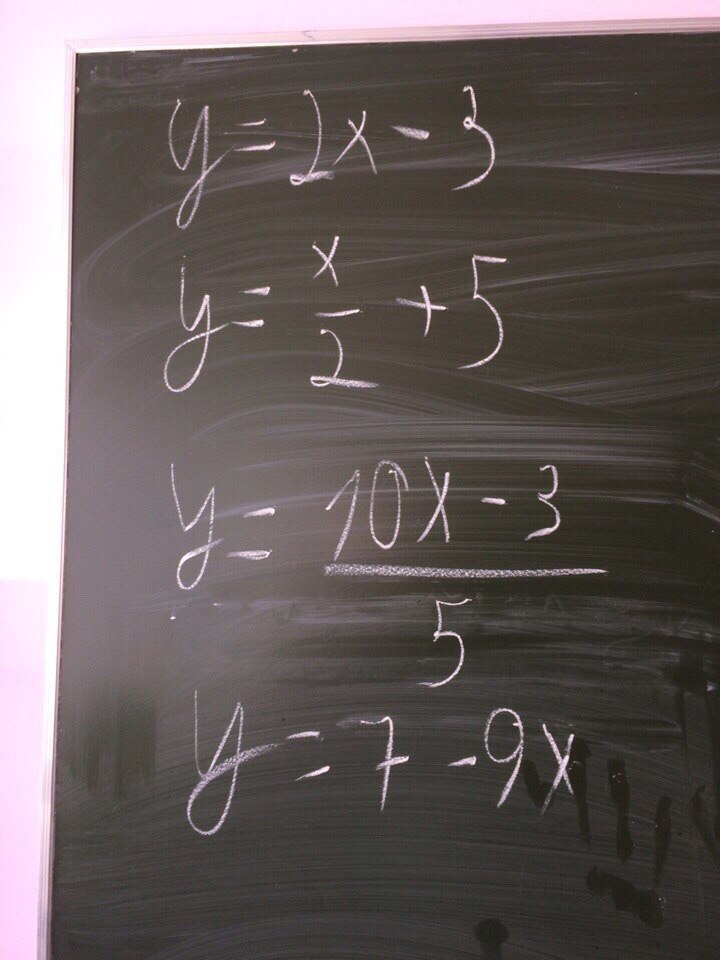 y = 2x - 3
y = x/2 + 5
y = (10x - 3)/5
y = 7 - 9x